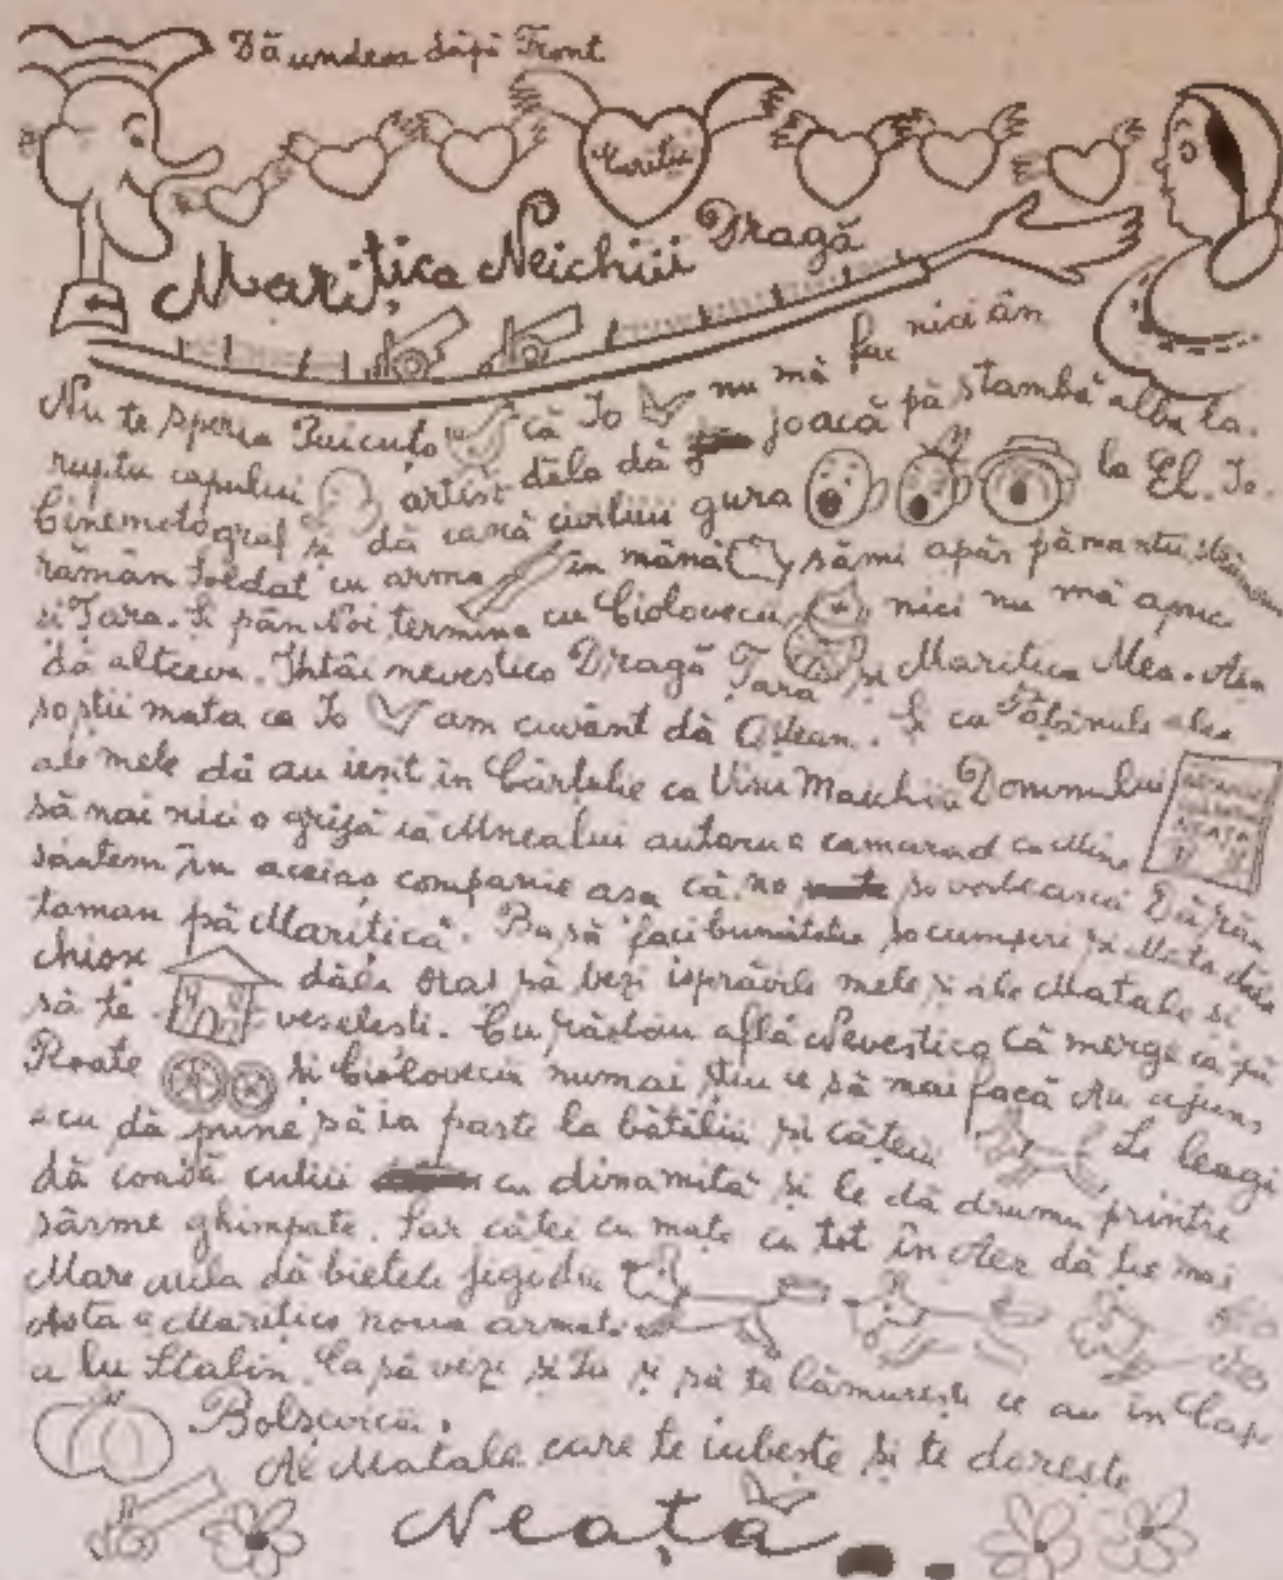 Dă undeva dăpă Front
Marițica Neichiii Dragă
Nu te speria Puicuțo că Io nu mă fac nici ân
ruptu capului artist dăla dă joacă pă stambă alba la
Cinematograf și dă cască civilii gura la El. Io
rămân Soldat cu arma în mână sămi apăr pământu
si Țara. Si pân Noi termina cu Ciolovecu nici nu mă apuc
dă altceva. Întâi nevestico Dragă Țara și Maritica Mea.
so știi mata ca Io am cuvânt dă Oltean. Si ca
ale mele dă au iesit in Cărtulie ca Visu Maichii Domnului
să nai nici o grijă că Mnealui autoru e camarad cu Mine
sântem în aceiaș companie asa că no so vorbească Dă rău
taman pă Maritica. Ba să faci bunătate so cumperi și Mata dăla
chiosc dăla Oraș să vezi isprăvile mele și ale Matale si
să te veselesti. Cu războu află Nevestico Că merge ca pă
Roate si Ciolovecii numai știu ce să mai facă Au ajuns
acu dă pune să ia parte la bătălii și cățeii Le leagă
dă coadă cutii cu dinamită si le dă drumu printre
sârme ghimpate. Sar căței cu mate cu tot în Aer dă ție mai
Mare mila dă bietele jigodii
Asta e Maritico noua armată
a lu Stalin Ca să vezi și Tu și să te lămurești ce au in Cap
Bolșevicii.
Al Matale care te iubeste și te dorește
Neață